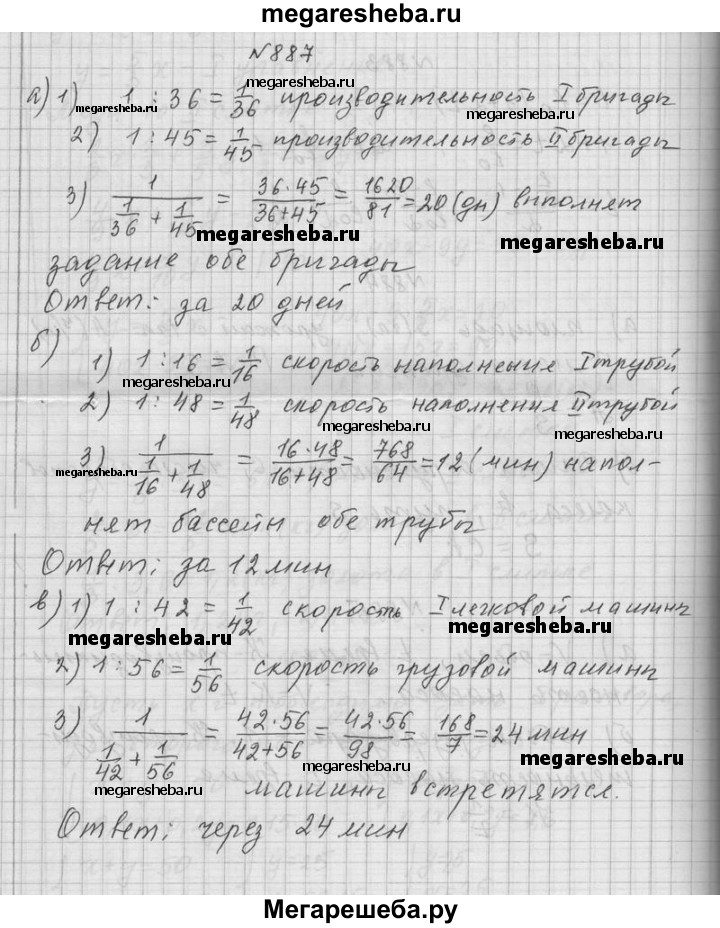 megaresheba.ru
N887
megaresheba.ru
а) 1) 1 : 36 = 1/36 производительность I бригады
megaresheba.ru megaresheba.ru
2) 1 : 45 = 1/45 производительность II бригады
3) 1/(1/36 + 1/45) = 36·45/36+45 = 1620/81 = 20 (дн) выполнят
megaresheba.ru megaresheba.ru
задание обе бригады
Ответ: за 20 дней
б)
1) 1 : 16 = 1/16 скорость наполнения I трубой
megaresheba.ru megaresheba.ru
2) 1 : 48 = 1/48 скорость наполнения II трубой
megaresheba.ru
3) 1/(1/16 + 1/48) = 16·48/16+48 = 768/64 = 12 (мин) напол-
megaresheba.ru megaresheba.ru
нят бассейн обе трубы
Ответ: за 12 мин
в) 1) 1 : 42 = 1/42 скорость I легковой машины
megaresheba.ru megaresheba.ru
2) 1 : 56 = 1/56 скорость грузовой машины
3) 1/(1/42 + 1/56) = 42·56/42+56 = 42·56/98 = 168/7 = 24 мин
megaresheba.ru megaresheba.ru
megaresheba.ru
машины встретятся.
Ответ: через 24 мин
Мегарешеба.ру